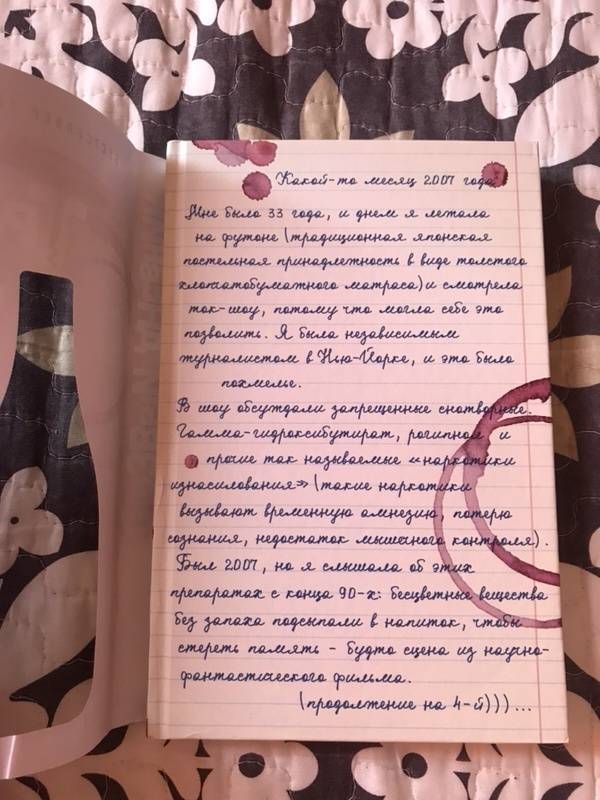 Какой-то месяц 2007 года
Мне было 33 года, и днем я летала
на футоне (традиционная японская
постельная принадлежность в виде толстого
хлопчатобумажного матраса) и смотрела
ток-шоу, потому что могла себе это
позволить. Я была независимым
журналистом в Нью-Йорке, и это было
похмелье.
В шоу обсуждали запрещенные снотворные.
Гамма-гидроксибутират, рогипнол и
прочие так называемые «наркотики
изнасилования» (такие наркотики
вызывают временную амнезию, потерю
сознания, недостаток мышечного контроля).
Был 2007, но я слышала об этих
препаратах с конца 90-х: бесцветные вещества
без запаха подсыпали в напиток, чтобы
стереть память - будто сцена из научно-
фантастического фильма.
(продолжение на 4-й))) ...